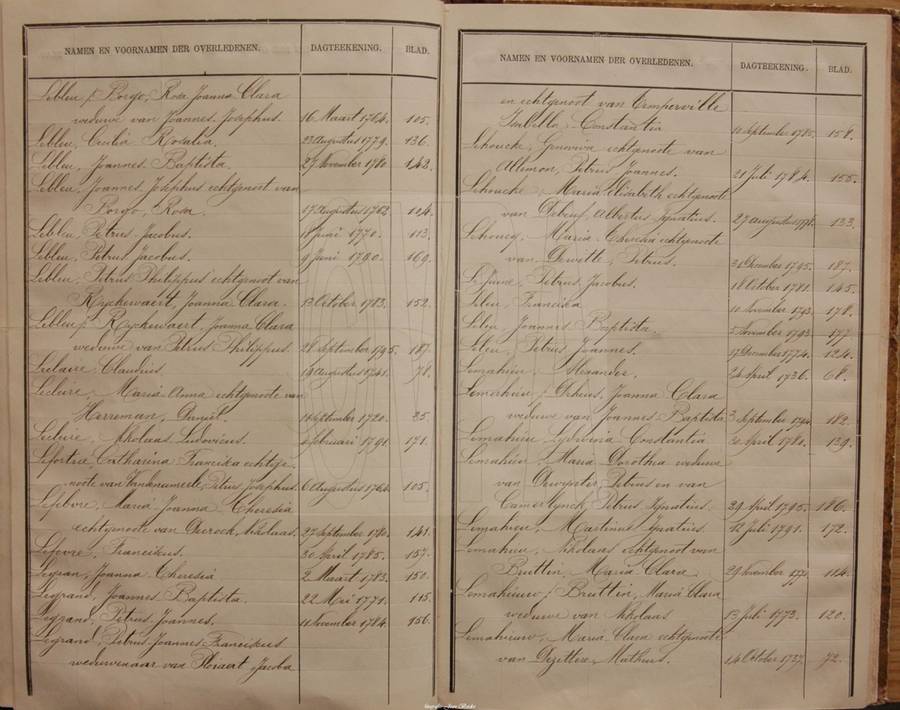 NAMEN EN VOORNAMEN DER OVERLEDENEN. DAGTEEKENING. BLAD.
Lebleu f Borgo, Rosa Joanna Clara
weduwe van Joannes Josephus. 16 Maart 1764. 105.
Lebleu, Cecilia Rosalia. 23 Augustus 1779. 136.
Lebleu, Joannes Baptista. 27 November 1780. 142.
Lebleu, Joannes Josephus echtgenoot van
Borgo, Rosa. 17 Augustus 1762 104.
Lebleu, Petrus Jacobus. 1770. 113.
Lebleu, Petrus Jacobus. 9 Juni 1790. 169.
Lebleu, Petrus Philippus echtgenoot van
Ryckewaert, Joanna Clara. 13 October 1783. 152.
Lebleu f Ryckewaert, Joanna Clara
weduwe van Petrus Philippus. 28 September 1795. 187.
Leclaire, Claudius. 19 Augustus 1741. 78.
Lecleire, Maria Anna echtgenoote van
Herreman, Daniel. September 1720. 35.
Lecleire, Nicolaas Ludovicus. 6 februari 1791. 171.
Lefortrie, Catharina Francisca echtge-
noote van Petrus Josephus. 6 Augustus 1764. 105.
Lefebvre, Maria Joanna Theresia
echtgenoote van Nicolaas. 27 September 1780. 141.
Lefevre, Franciskus. 30 April 1785. 157.
Legran, Joanna Theresia 2 Maart 1783. 150.
Legrand, Joannes Baptista. 22 Mei 1771. 115.
Legrand, Petrus Joannes. 11 November 1784. 156.
Legrand, Petrus Joannes Franciscus
weduwenaar van Jacoba
NAMEN EN VOORNAMEN DER OVERLEDENEN. DAGTEEKENING. BLAD.
en echtgenoot van Temperville
Isabella Constantia 11 September 1785. 158.
Lehoucke, Genoveva echtgenoote van
Allemon, Petrus Joannes. 21 Juli 1784. 155.
Lehoucke, Maria Elisabeth echtgenoote
van Albertus Ignatius. 27 Augustus 1778. 133.
Lehoucq, Maria Theresia echtgenoote
van Dewette, Petrus. 31 December 1795. 187.
Le Jeune, Petrus Jacobus. 18 October 1781. 145.
Leleu, Francisca 10 November 1793. 178.
Leleu, Joannes Baptista. 5 November 1793. 177.
Leleu, Petrus Joannes. 17 December 1774. 124.
Lemahieu, Alexander. 24 April 1736. 68.
Lemahieu f Joanna Clara
weduwe van Joannes Baptista 3 September 182.
Lemahieu, Lydwina Constantia 30 April 1780. 139.
Lemahieu, Maria Dorothea weduwe
van Petrus en van
Camerlynck, Petrus Ignatius. 29 April 1795. 186.
Lemahieu, Martinus Ignatius. 12 Juli 1791. 172.
Lemahieu, Nikolaas echtgenoot van
Bruttin, Maria Clara. 29 November 114.
Lemahieuw f Bruttin, Maria Clara
weduwe van Nikolaas 13 Juli 1773. 120.
Lemahieuw, Maria Clara echtgenoote
van Dezitter, Mathuis. 14 October 1737. 72.